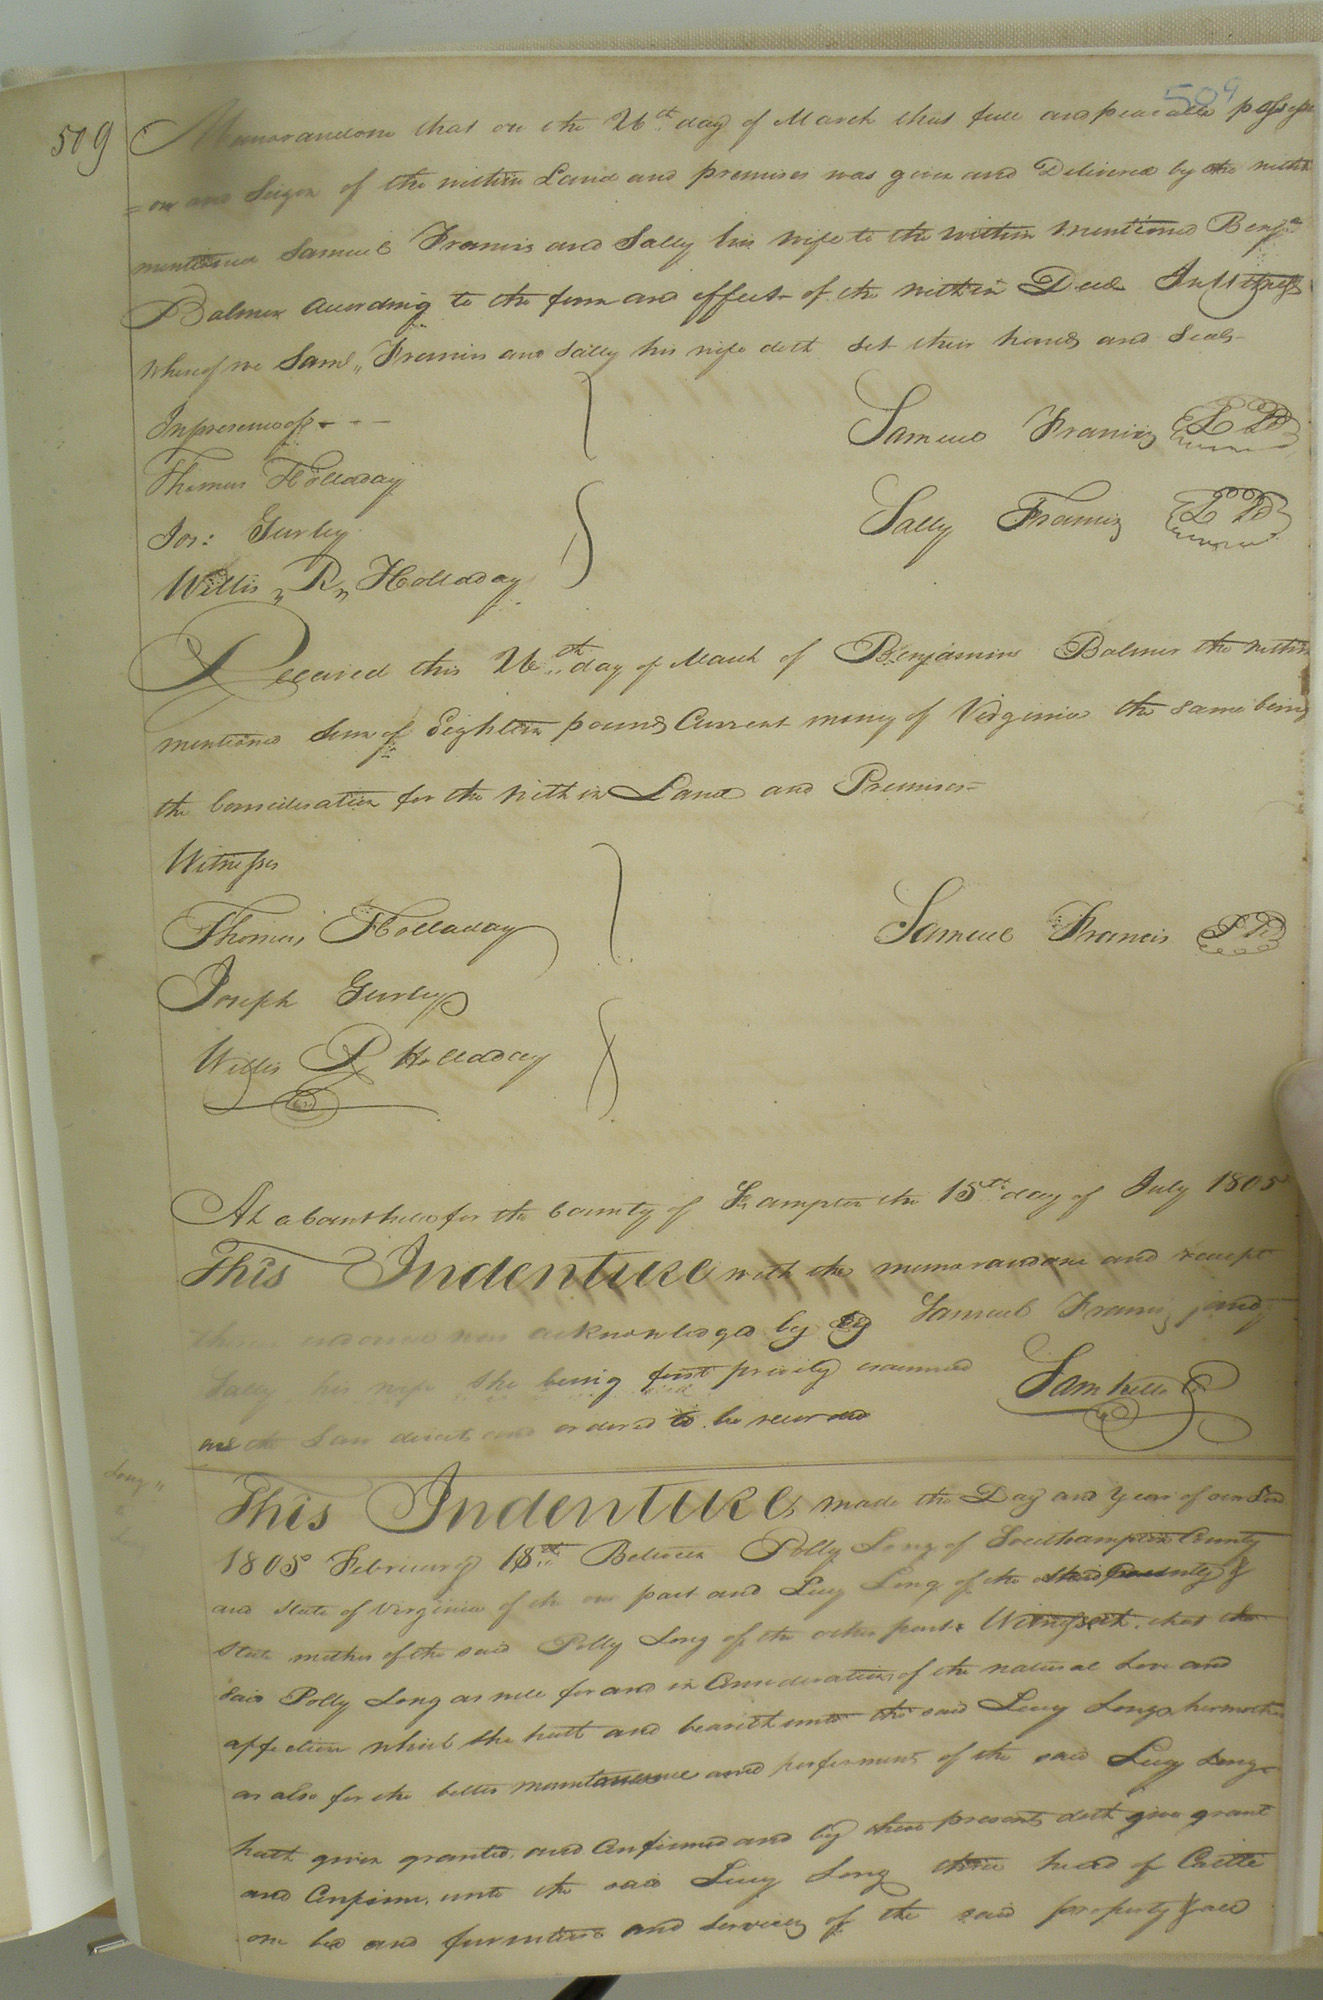 509
509
Memorandom that on the 26th day of March that full and peacable possessi
=on and Seizen of the within Land and premises was given and Delivered by the within
mentioned Samuel Francis and Sally his wife to the within mentioned Benja
Balmer according to the form and effect of the within Deed In Witness
whereof we Saml,, Francis and Sally his wife doth set their hands and Seals
In presence of
Thomas Holladay
Jos: Gurley
Willis ,,R,, Holladay
Samuel Francis L S
Sally Francis L S
Received this 26th day of March of Benjamin Balmer the within
mentioned Sum of Eighteen pounds Current money of Virginia the same being
the Consideration for the within Land and Premises
Witnesses
Thomas Holladay
Joseph Gurley
Willis R Holladay
Samuel Francis L S
At a Court held for the County of Southampton the 15th day of July 1805
This Indenture with the memorandom and receipt
thereon endorsed was acknowledged by Samuel Francis and
Sally his wife she being first privily examined
as the Law directs and ordered to be recorded
Sam Kello C
Long,,
to
Long
This Indenture, made the Day and Year of our Lord
1805 February 18th Between Polly Long of Southampton County
and State of Virginia of the one part and Lucy Long of the County &
State mother of the said Polly Long of the other part Witnesseth that the
said Polly Long as well for and in Consideration of the natural Love and
affection which she hath and beareth unto the said Lucy Long her mother
as also for the better maintanance and preferment of the said Lucy Long
hath given granted and Confirmed and by these presents doth give grant
and Confirm unto the said Lucy Long three head of Cattle
one bed and furniture and services of the said property & all